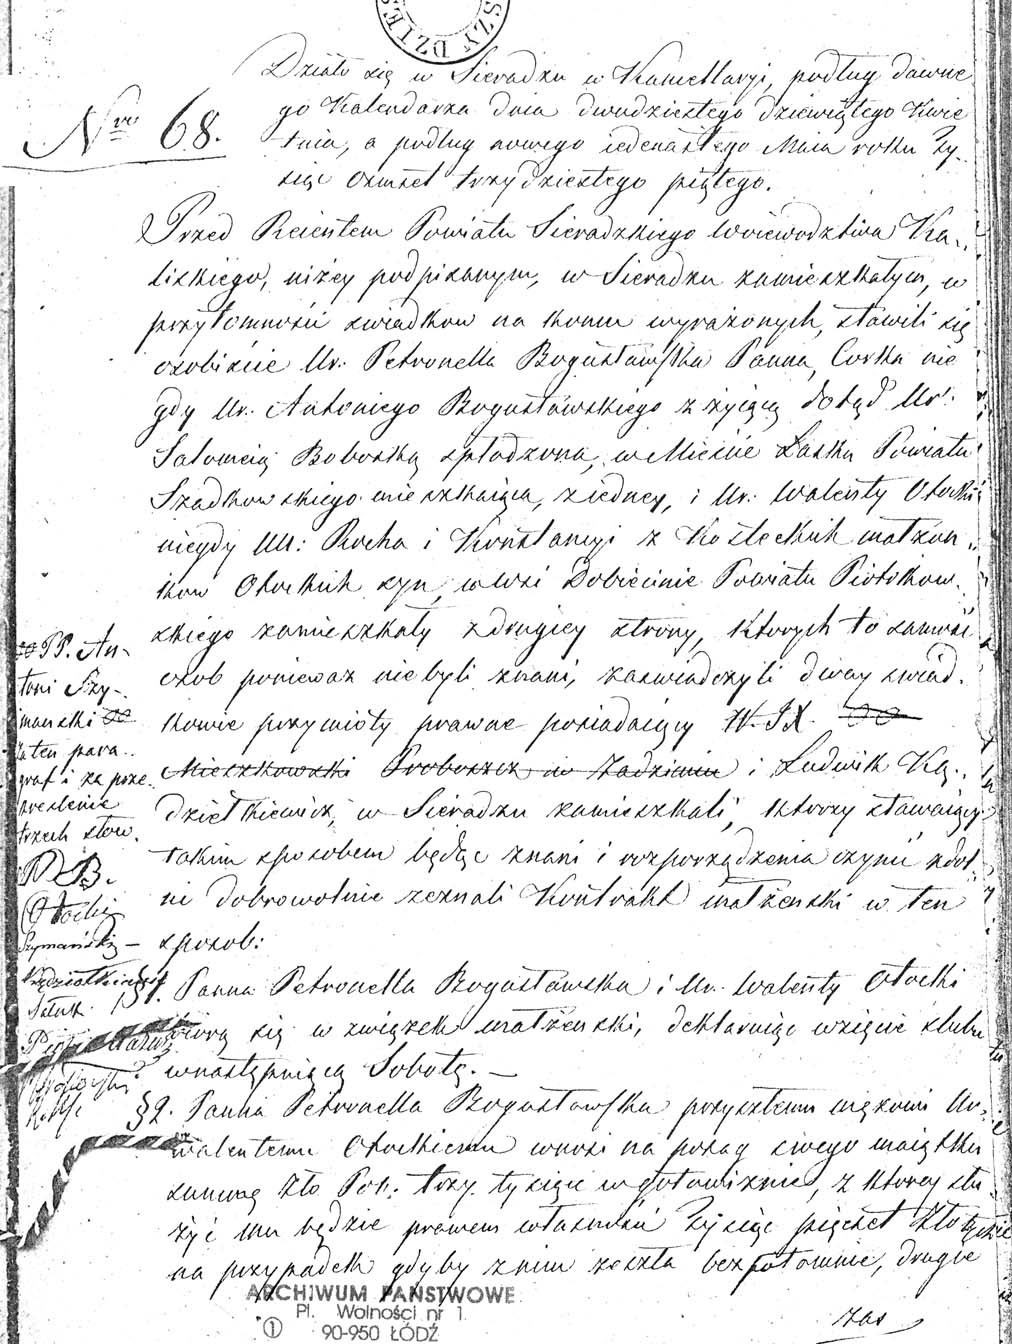 SZY DZIE
Nro 68.
Działo się w Sieradzu w Kancellaryi, podług dawne
go Kalendarza dnia dwudziestego dziewiątego Kwie
tnia, a podług nowego iedenastego Maia roku Ty-
siąc osmset trzydziestego piątego.
Przed Reientem Powiatu Sieradzkiego Woiewodztwa Ka-
liskiego, niżey podpisanym, w Sieradzu zamieszkałym, w
przytomności swiadkow na końcu wyrażonych, stawili się
osobiście Ur. Petronella Bogusławska Panna, Corka nie
gdy Ur. Antoniego Bogusławskiego z żyiącą dotąd Ur.
Salomeią Boboską spłodzona, w Mieście Łasku Powiatu
Szadkowskiego mieszkaiąca, z iedney, i Ur. Walenty Otocki
niegdy UU: Rocha i Konstancyi z Kosteckich małżon
kow Otockich syn, w wsi Dobiecinie Powiatu Piotrkow
skiego zamieszkały z drugiey strony, ktorych to samość
osob ponieważ nie byli znani, zaswiadczyli dway swiad
kowie przymioty prawne posiadaiący W. JX.
Mieszkowski Proboszcz w Zadzimiu i Ludwik Kę-
dzietkiewicz, w Sieradzu zamieszkali, ktorzy stawaiący
takim sposobem będąc znani i rozporządzenia czynić zdol
ni dobrowolnie zeznali Kontrakt małżenski w ten
sposob:
§ 1. Panna Petronella Bogusławska i Ur. Walenty Otocki
biorą się w związek małżenski, deklaruiąc wzięcie slubu
w następuiącą Sobotę. —
§ 2. Panna Petronella Bogusławska przyszłemu mężowi Ur.
Walentemu Otockiemu wnosi na posag swego maiątku
summę Zło. Pol: trzy tysiące w gotowiznie, z ktorey słu
żyć mu będzie prawem własności Tysiąc pięćset Złotych
na przypadek gdyby z nim zeszła bezpotomnie, drugie
zas
PP. An-
toni Szy-
manski
za ten para
graf i za prze
kreslenie
trzech słow.
Otocki
Szymański
ARCHIWUM PAŃSTWOWE
Pl. Wolności nr 1
① 90-950 ŁÓDŹ